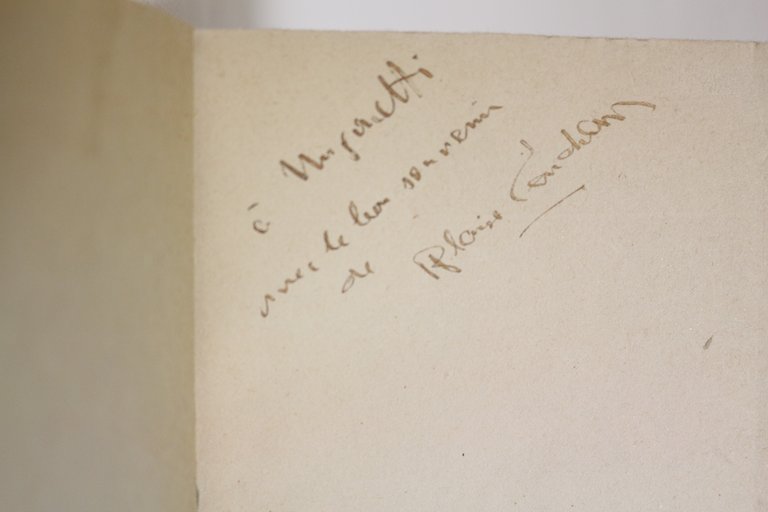 à Ungaretti
avec le bon souvenir
de Blaise Cendrars